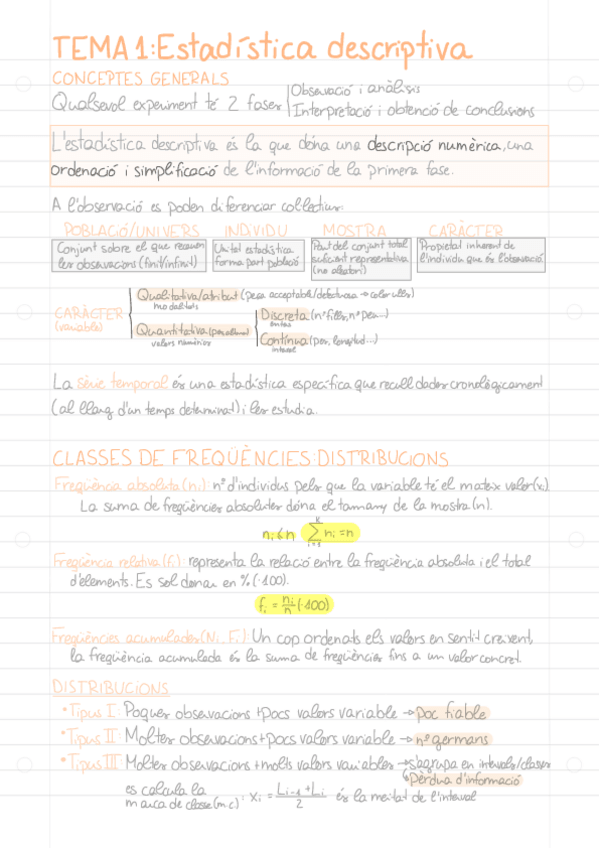 TEMA 1: Estadística descriptiva
CONCEPTES GENERALS
Qualsevol experiment té 2 fases
Observació i anàlisis
Interpretació i obtenció de conclusions
L'estadística descriptiva és la que dóna una descripció numèrica, una
ordenació i simplificació de l'informació de la primera fase.
A l'observació es poden diferenciar col·lectius:
POBLACIÓ/UNIVERS INDIVIDU MOSTRA CARÀCTER
Conjunt sobre el que recauen
les observacions (finit/infinit)
Unitat estadística
forma part població
Part del conjunt total
suficient representativa
(no aleatori)
Propietat inherent de
l'individu que és l'observació.
CARÀCTER
(variable)
Qualitativa/atribut (peça acceptable/defectuosa → color ulls)
modalitats
Quantitativa
valors numèrics
Discreta (nº fills, nº peces...)
enters
Contínua (pes, longitud...)
interval
La sèrie temporal és una estadística específica que recull dades cronològicament
(al llarg d'un temps determinat) i les estudia.
CLASSES DE FREQÜÈNCIES: DISTRIBUCIONS
Freqüència absoluta (ni): nº d'individus pels que la variable té el mateix valor (xi)
La suma de freqüències absolutes dóna el tamany de la mostra (n).
ni ≤ n ∑ ni = n
Freqüència relativa (fi): representa la relació entre la freqüència absoluta i el total
d'elements. Es sol donar en % (·100).
fi = ni/n (·100)
Freqüències acumulades (Ni, Fi): Un cop ordenats els valors en sentit creixent,
la freqüència acumulada és la suma de freqüències fins a un valor concret.
DISTRIBUCIONS
• Tipus I: Poques observacions + pocs valors variable → poc fiable
• Tipus II: Moltes observacions + pocs valors variable → nº germans
• Tipus III: Moltes observacions + molts valors variables → s'agrupa en intervals/classes
↳ Pèrdua d'informació
es calcula la
marca de classe (m.c): xi = (Li-1 + Li)/2 és la meitat de l'interval